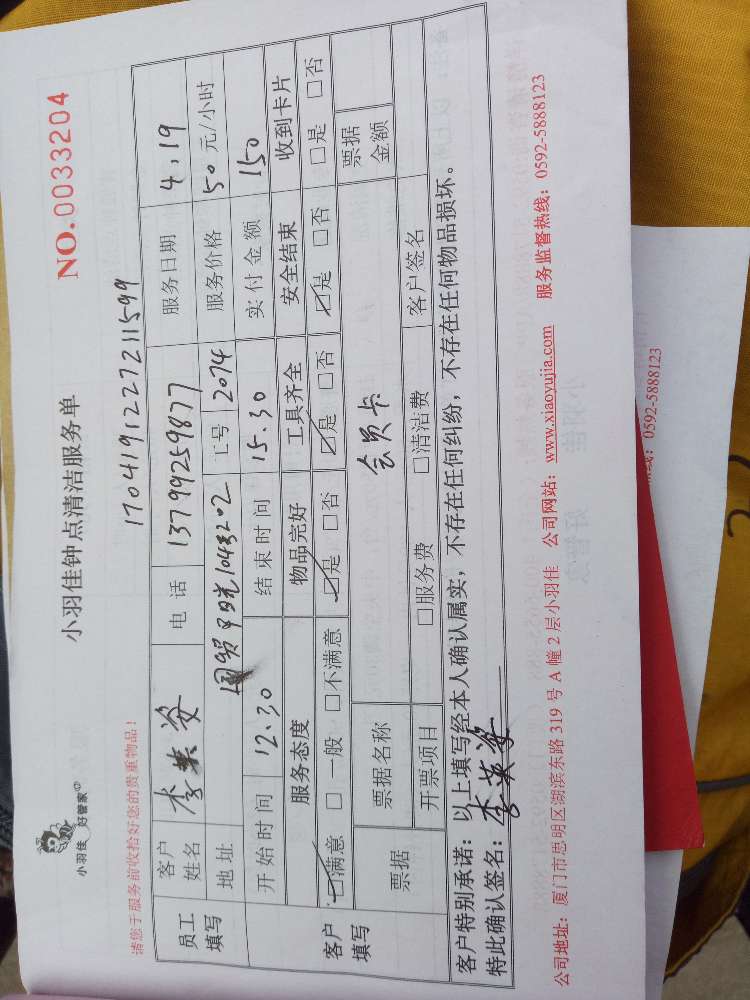 小羽佳 好管家
小羽佳钟点清洁服务单
NO.0033204
请您于服务前收拾好您的贵重物品！
1704191227211599
员工填写 客户姓名 李英姿 电话 13799259877 服务日期 4.19
地址 国贸阳光1043202 工号 2074 服务价格 50元/小时
客户填写 开始时间 12.30 结束时间 15.30 实付金额 150
服务态度 物品完好 工具齐全 安全结束 收到卡片
☑满意 □一般 □不满意 ☑是 □否 ☑是 □否 ☑是 □否 □是 □否
票据 票据名称 会员卡 票据金额
开票项目 □服务费 □清洁费 客户签名
客户特别承诺：以上填写经本人确认属实，不存在任何纠纷，不存在任何物品损坏。
特此确认签名：李英姿
公司地址：厦门市思明区湖滨东路 319 号 A 幢 2 层小羽佳 公司网站：www.xiaoyujia.com 服务监督热线：0592-5888123
热线：0592-5888123